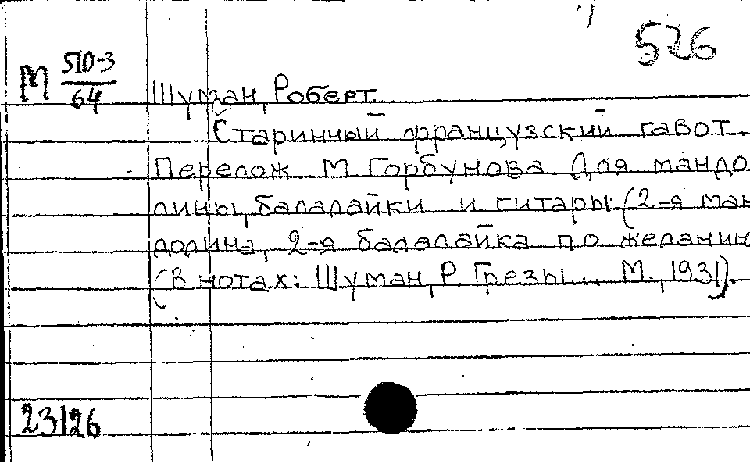 526
М 510-3
64
Шуман, Роберт.
Старинный французский гавот.
Перелож М Горбунова Для мандо
лины, балалайки и гитары (2-я ман
долина, 2-я балалайка по желанию
(В нотах: Шуман, Р. Грезы... М., 1931).
23126